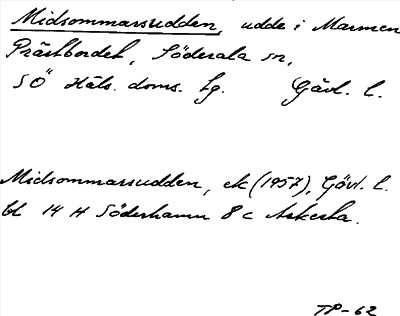 Midsommarsudden, udde i Marmen
Prästbordet, Söderala sn,
SÖ Häls. doms. tg. Gävl. l.
Midsommarsudden, ek (1957), Gävl. l.
bl 14 H Söderhamn 8 c Askesta.
TP-62